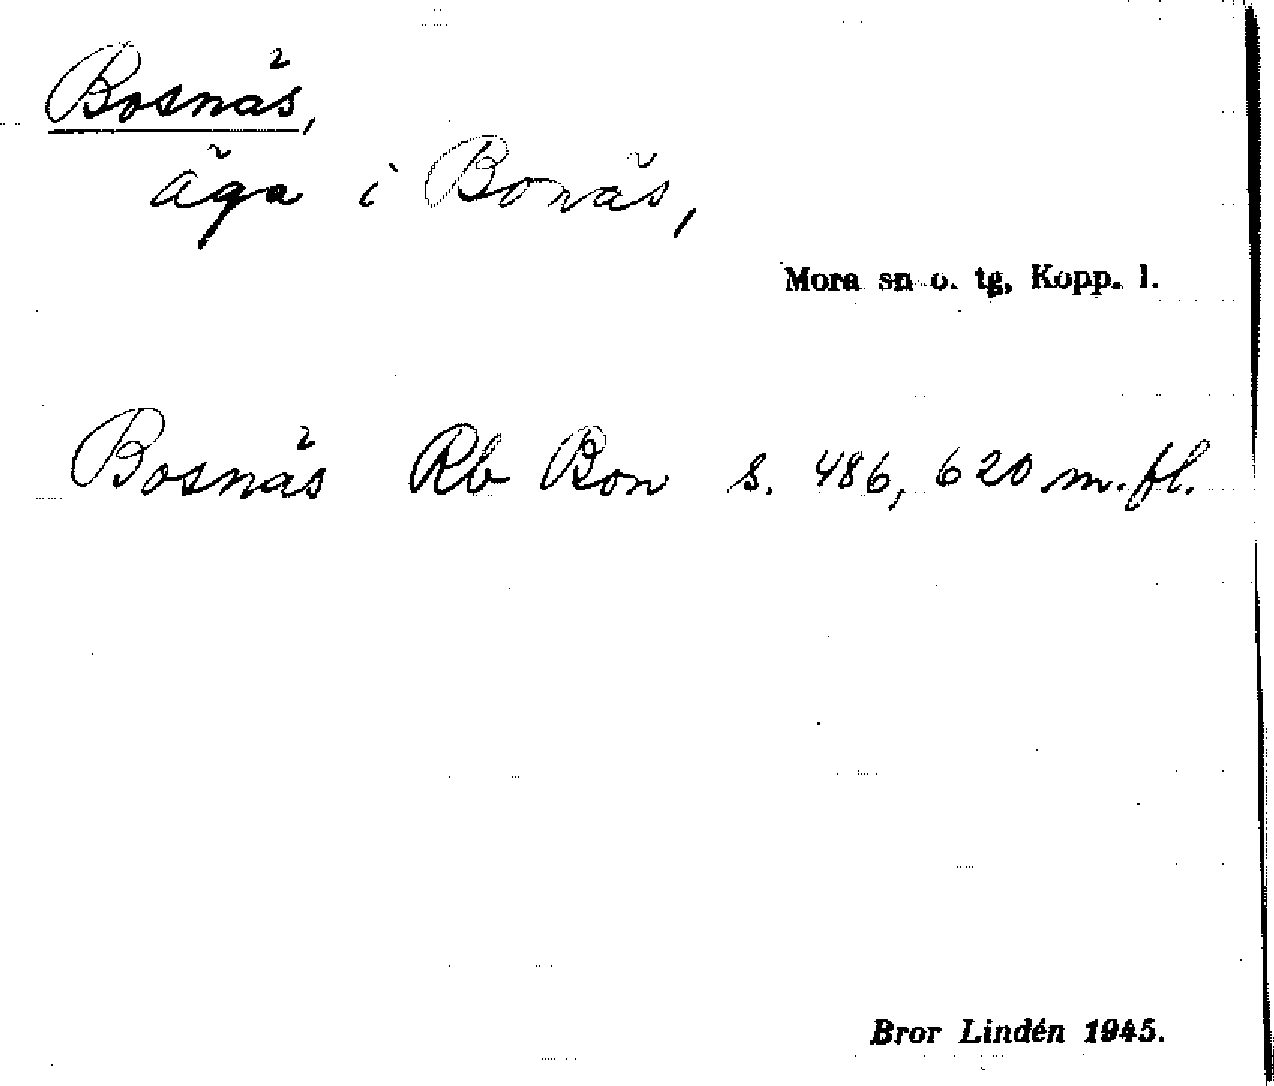 Bosnäs,
äga i Bonäs,
Mora sn o. tg, Kopp. l.
Bosnäs Rb Bon s. 486, 620 m. fl.
Bror Lindén 1945.